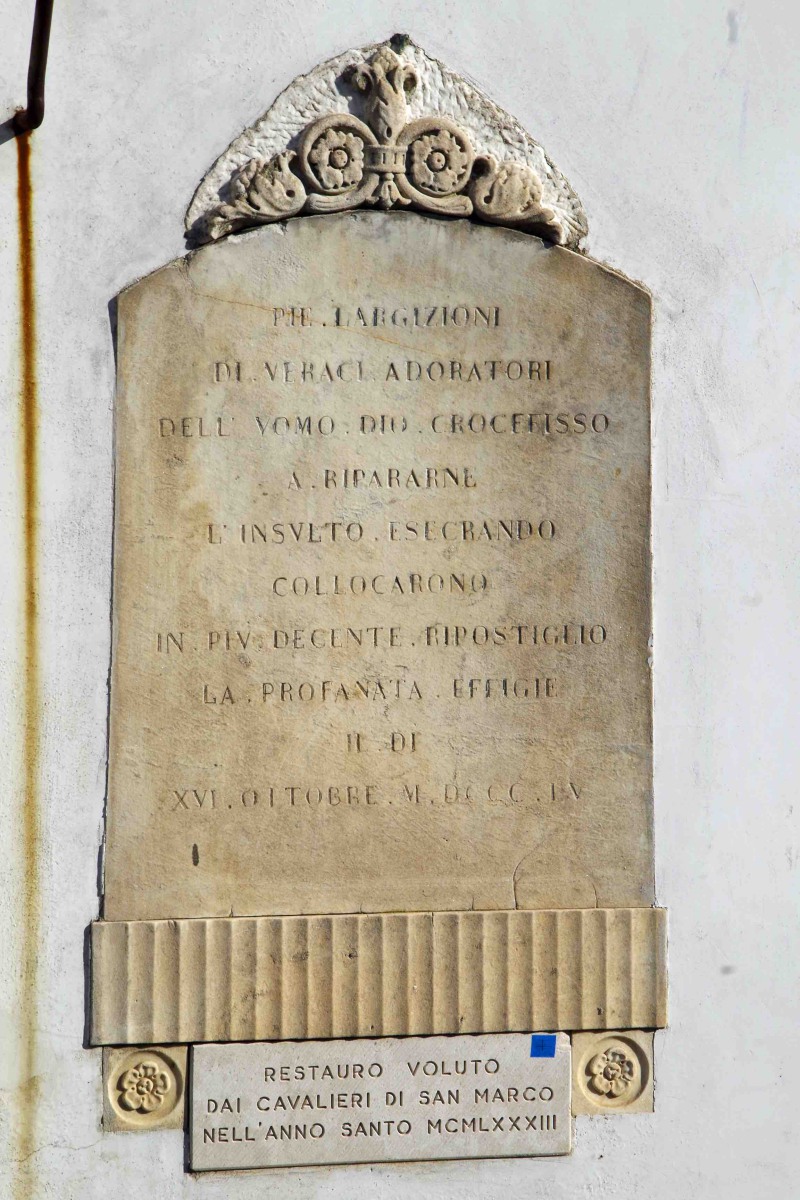 PIE . LARGIZIONI
DI . VERACI . ADORATORI
DELL' VOMO . DIO . CROCEFISSO
A . RIPARARNE
L' INSVLTO . ESECRANDO
COLLOCARONO
IN . PIV . DECENTE . RIPOSTIGLIO
LA . PROFANATA . EFFIGIE
IL . DI
XVI . OTTOBRE . M . DCCC . LV
RESTAURO VOLUTO
DAI CAVALIERI DI SAN MARCO
NELL'ANNO SANTO MCMLXXXIII